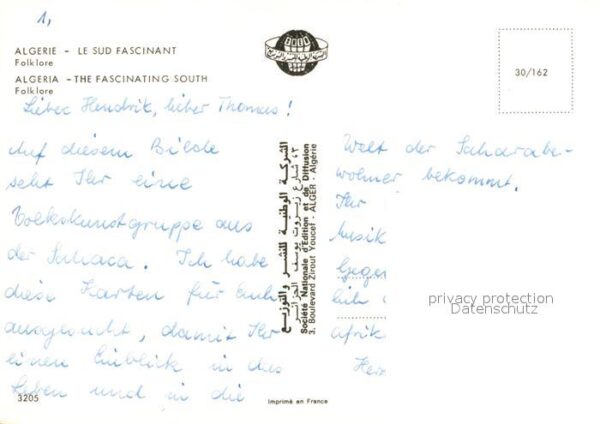 1,
ALGERIE - LE SUD FASCINANT
Folklore
ALGERIA - THE FASCINATING SOUTH
Folklore
Lieber Hendrik, lieber Thomas!
Auf diesem Bilde
seht Ihr eine
Volkskunstgruppe aus
der Sahara. Ich habe
diese Karten für Euch
ausgesucht, damit Ihr
einen Einblick in das
Leben und in die
3205
الشركة الوطنية للنشر والتوزيع
٣ شارع زيروت يوسف الجزائر
Société Nationale d'Edition et de Diffusion
3, Boulevard Zirout Youcef - ALGER - Algérie
Imprimé en France
30/162
Welt der Saharabe-
wohner bekommt.
Ihr
Musik
Gegen
lich
afrik
Herz
privacy protection
Datenschutz